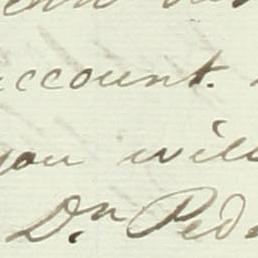 account.
you will
Dn Ped